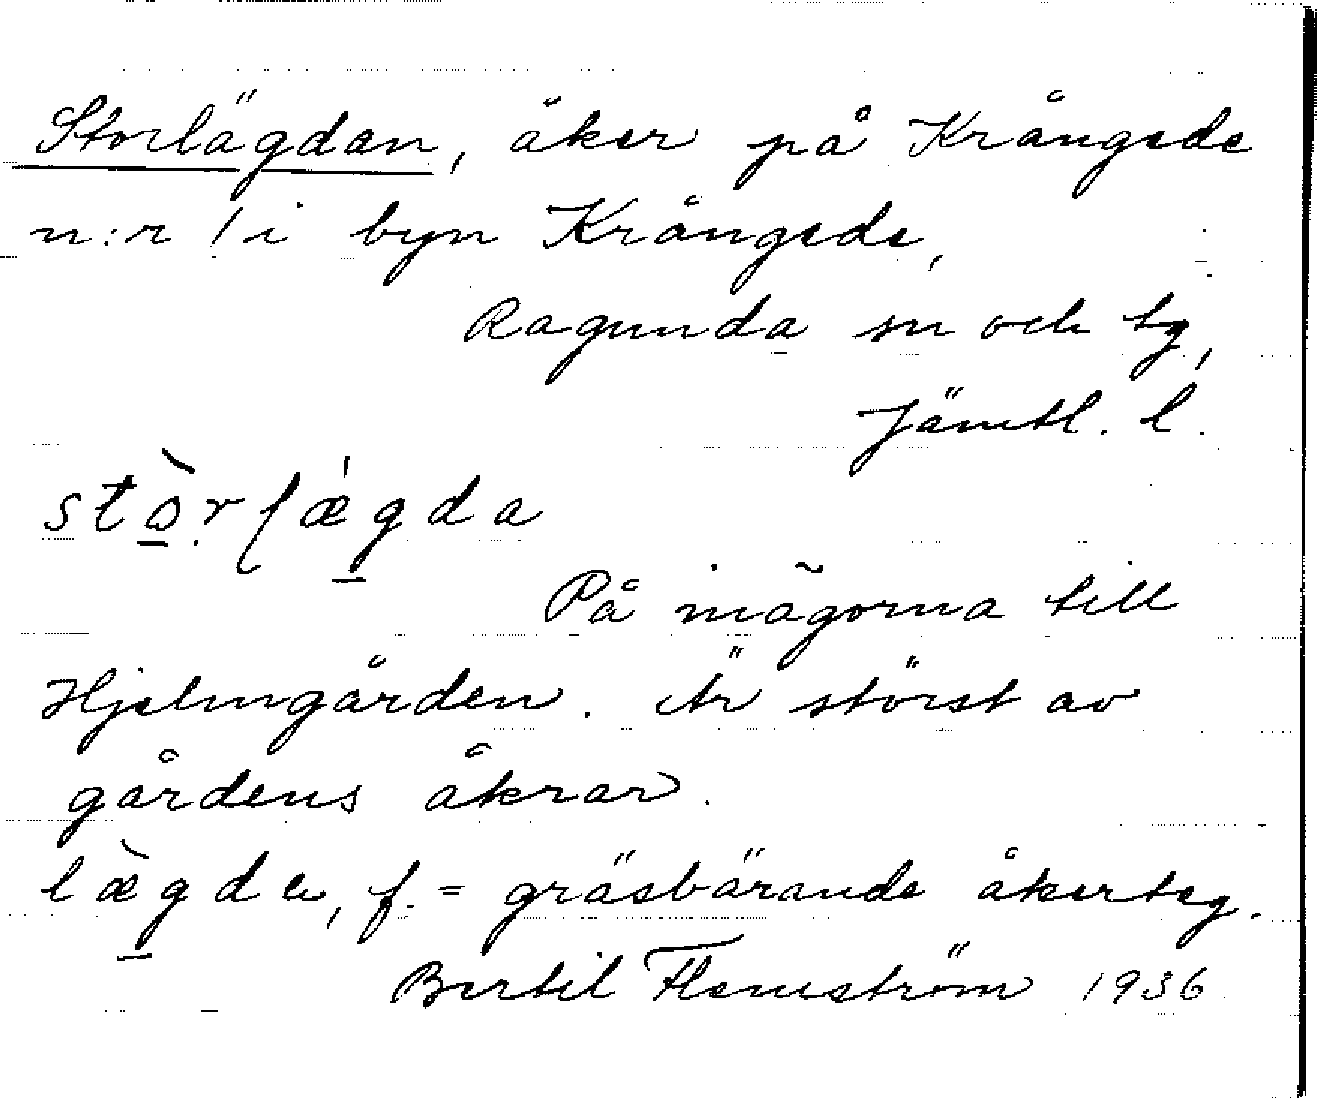 Storlägdan, åker på Krångede
n:r 1 i byn Krångede,
Ragunda sn och tg,
Jämtl. l.
stò̠rlǽgda
På inägorna till
Hjelmgården. Är störst av
gårdens åkrar.
læ̀gda, f. = gräsbärande åkerteg.
Bertil Flemström 1936